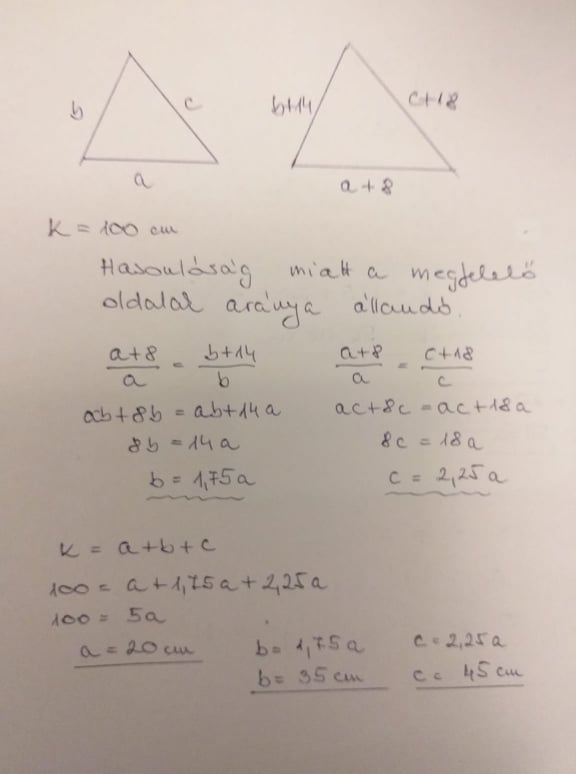 b c b+14 c+18
a a+8
K = 100 cm
Hasonlóság miatt a megfelelő
oldalak aránya állandó.
(a+8)/a = (b+14)/b (a+8)/a = (c+18)/c
ab+8b = ab+14a ac+8c = ac+18a
8b = 14a 8c = 18a
b = 1,75a c = 2,25a
K = a+b+c
100 = a+1,75a+2,25a
100 = 5a
a = 20 cm b = 1,75a c = 2,25a
b = 35 cm c = 45 cm